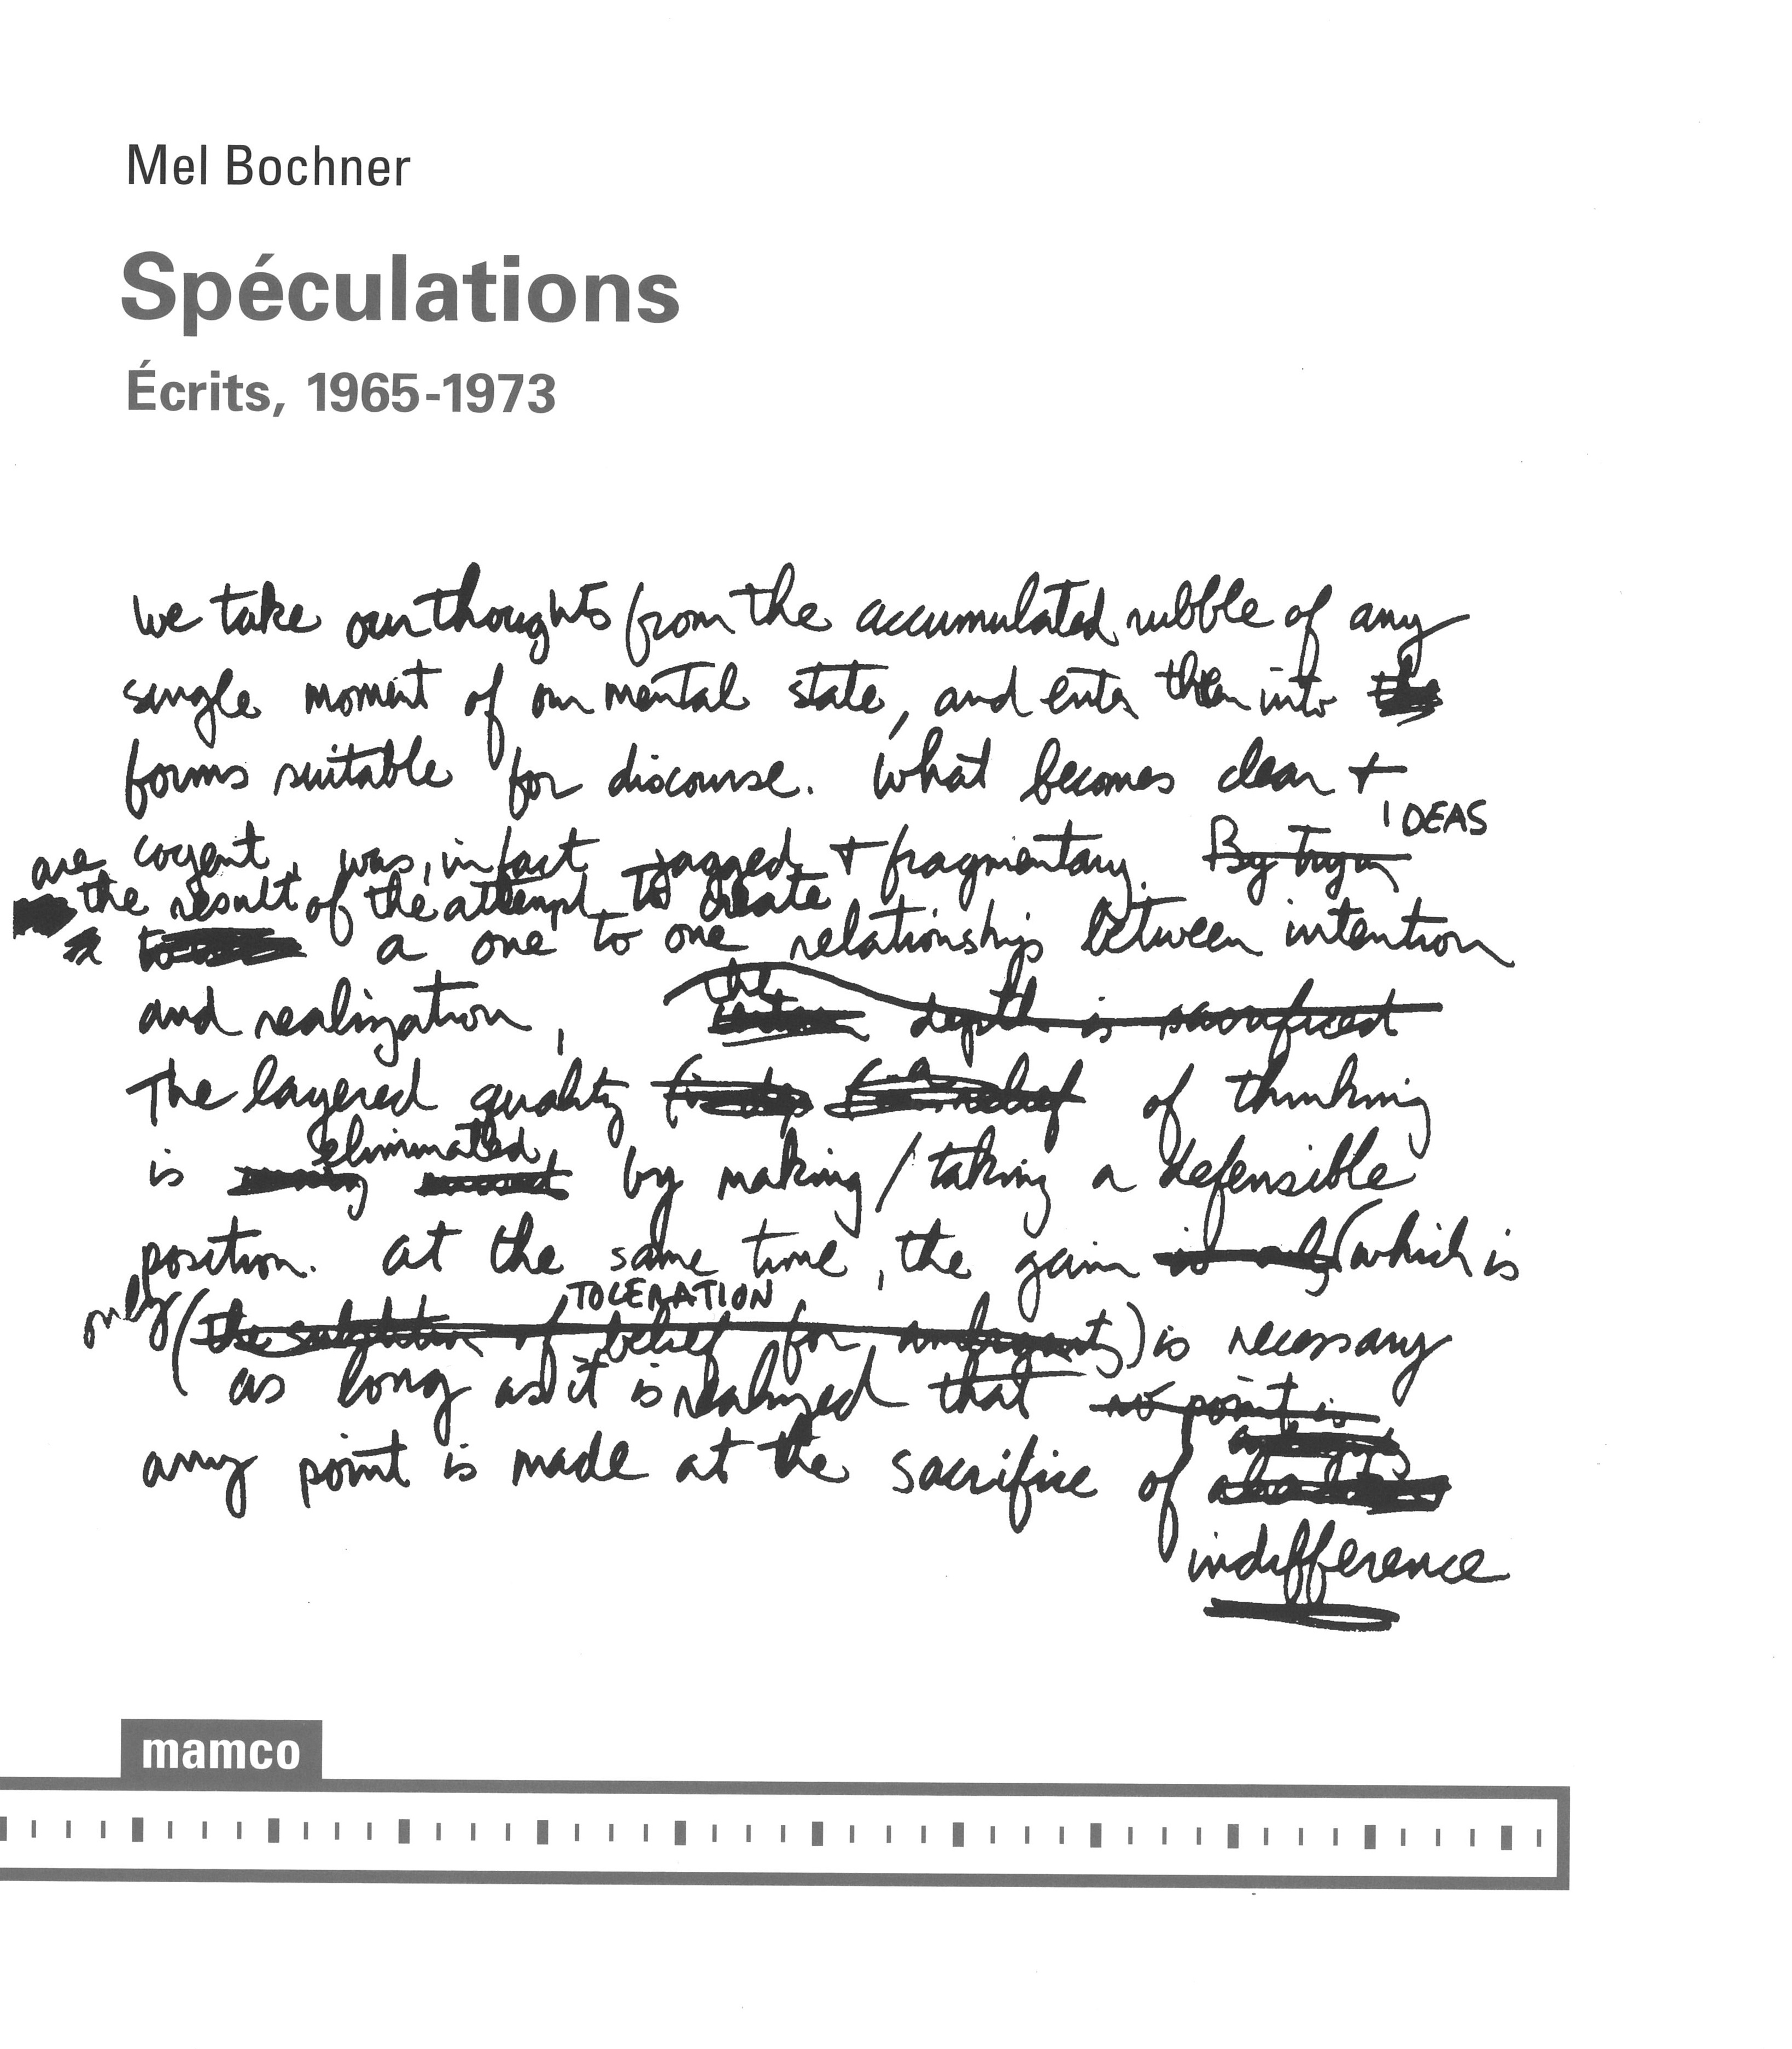 Mel Bochner
Spéculations
Écrits, 1965-1973
We take our thoughts from the accumulated rubble of any
single moment of our mental state, and enter them into the
forms suitable for discourse. What becomes clear +
IDEAS
cogent, was, in fact jagged + fragmentary. By trying
are the result of the attempt to create
a one to one relationship between intention
and realization, the depth is sacrificed
The layered quality of thinking
eliminated
is by making / taking a defensible
position. at the same time, the gain is only (which is
TOLERATION
only (the of belief for ) is necessary
as long as it is realized that no point is
any point is made at the sacrifice of
indifference
mamco